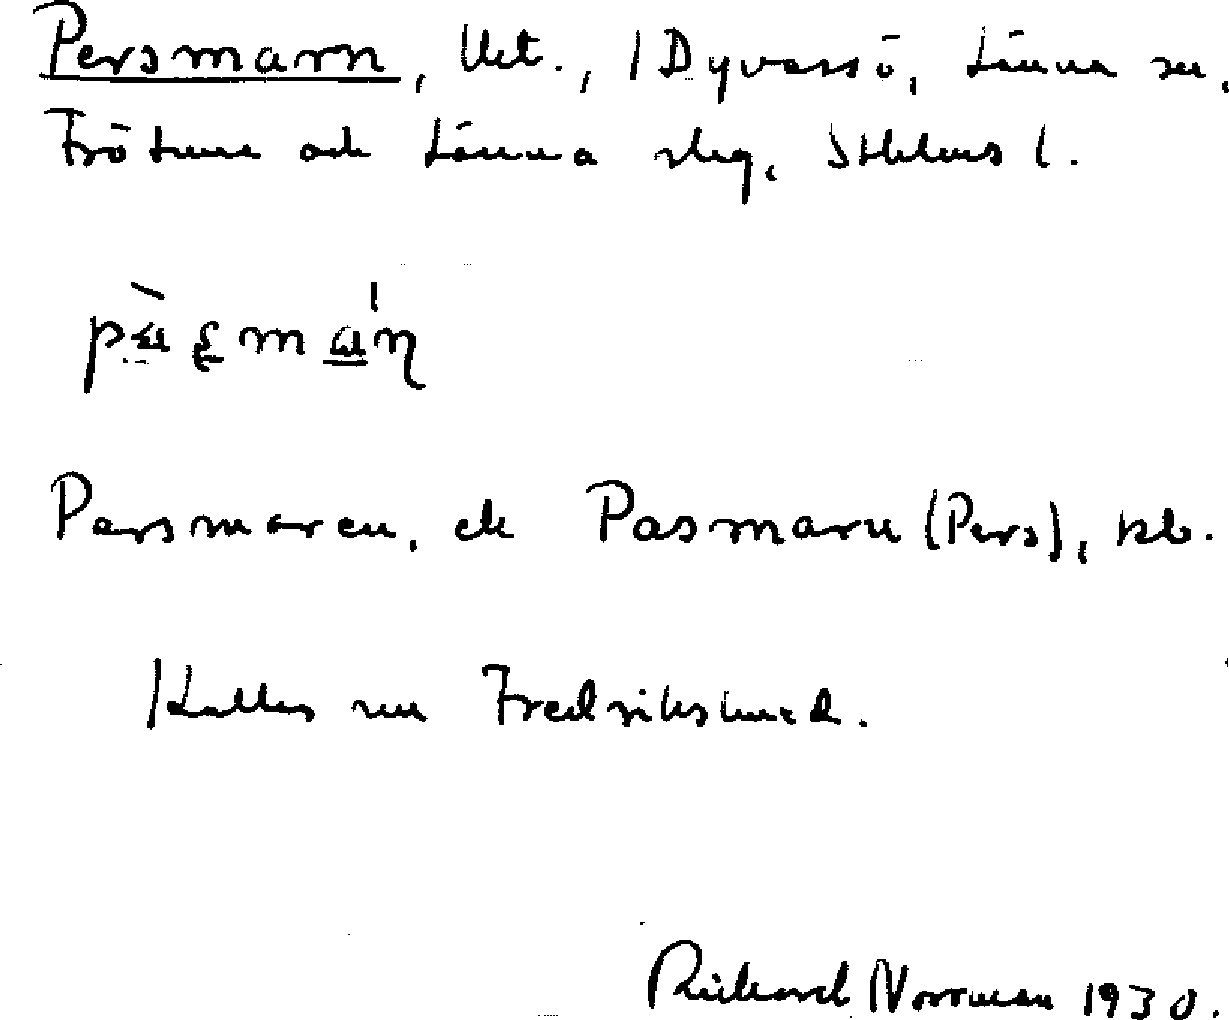 Persmarn, Utt., 1 Dyvassö, Länna sn,
Frötuna och Länna skg, Sthlms l.
Parsmaren, ek Pasmarn (Pers), kb.
Kallas nu Fredrikslund.
Rickard Norrman 1930.